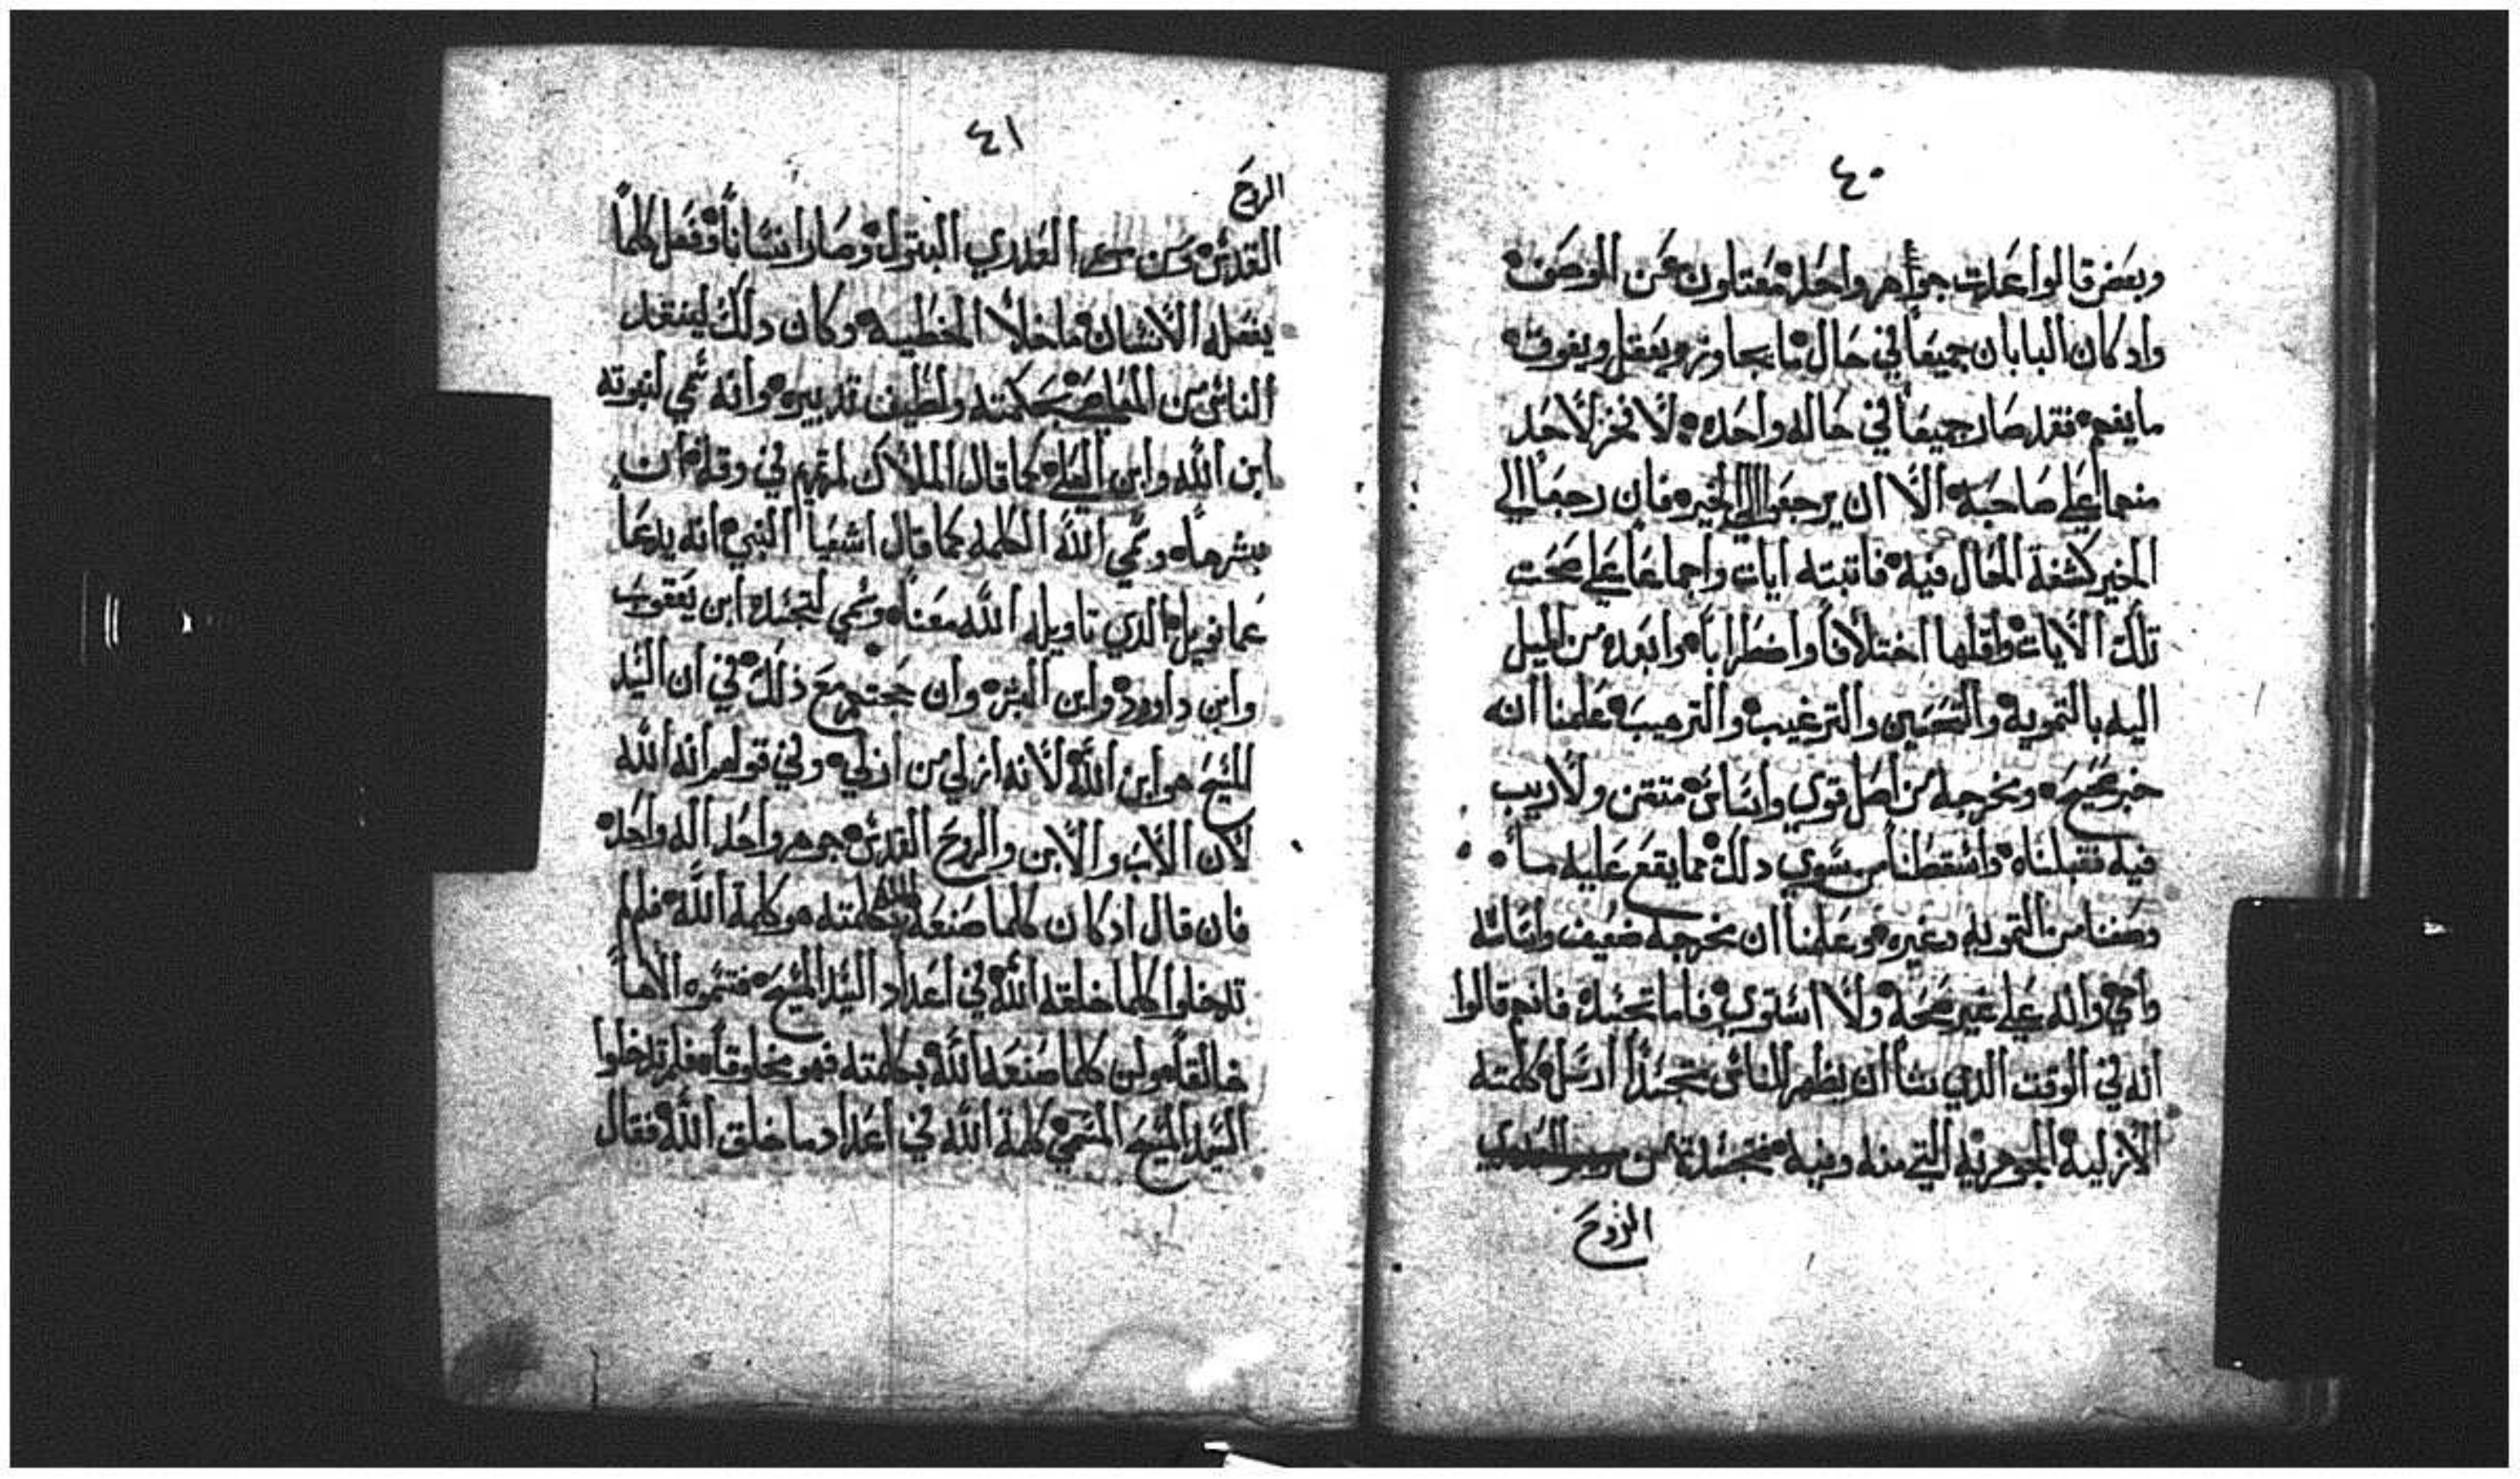 ٤٠
وبعض قالوا علت جواهر واحد متعتاون عن الوصف
واد كان البابان جميعاً في حال ما يجاوز ويعقل ويفوت
ما يفهم فقد صار جميعاً في حاله واحده لا فخر لاحد
منهما علي صاحبه الا ان يرجعوا الي الخير فان رجعا الي
الخير كشفة المقال فيه فاتبته ايات واجماعاً علي صحت
تلك الايات واقلها اختلافاً واضطراباً وابعده من الميل
اليه بالتمويه والتحسين والترغيب والترهيب علمنا انه
خبر صحيح ومخرجه من اصل قوي واساس متقن ولا ريب
فيه فقبلناه واسقطنا من سوي دلك مما يقع عليه ما
وصفنا من التمويه وغيره وعلمنا ان مخرجه ضعيف واساسه
واهي وانه علي غير صحة ولا استوي فاما تجسده فانهم قالوا
انه في الوقت الذي شا ان يظهر للناس متجسداً ارسل كلمته
الازلية الجوهرية التي منه وفيه فتجسدة من
الروح
٤١
الروح
القدس ومن العدري البتول وصار انساناً وفعل كلما
يفعله الانسان ما خلا الخطيه وكان دلك لينقد
الناس من المعاصي بحكمته ولطيف تدبيره وانه سمي لنبوته
ابن الله وابن العلي كما قال الملاك لمريم في وقت ان
بشرها وسمي الله الكلمه كما قال اشعيا النبي انه يدعا
عمانويل الدي تاويله الله معنا وسمي لتجسده ابن يعقوب
وابن داوود وابن البشر وان حجتهم مع ذلك في ان السيد
المسيح هو ابن الله لانه ازلي من ازلي وفي قولهم انه الله
لان الاب والابن والروح القدس جوهر واحد اله واحد
فان قال اد كان كلما صنعه الله بكلمته هو كلمة الله فلم لم
تدخلوا كلما خلقه الله في اعداد السيد المسيح فتسموه الاهاً
خالقاً ولن كلما صنعه الله بكلمته فهو مخلوقاً فلم تدخلوا
السيد المسيح المسمي كلمة الله في اعداد ما خلق الله فقال